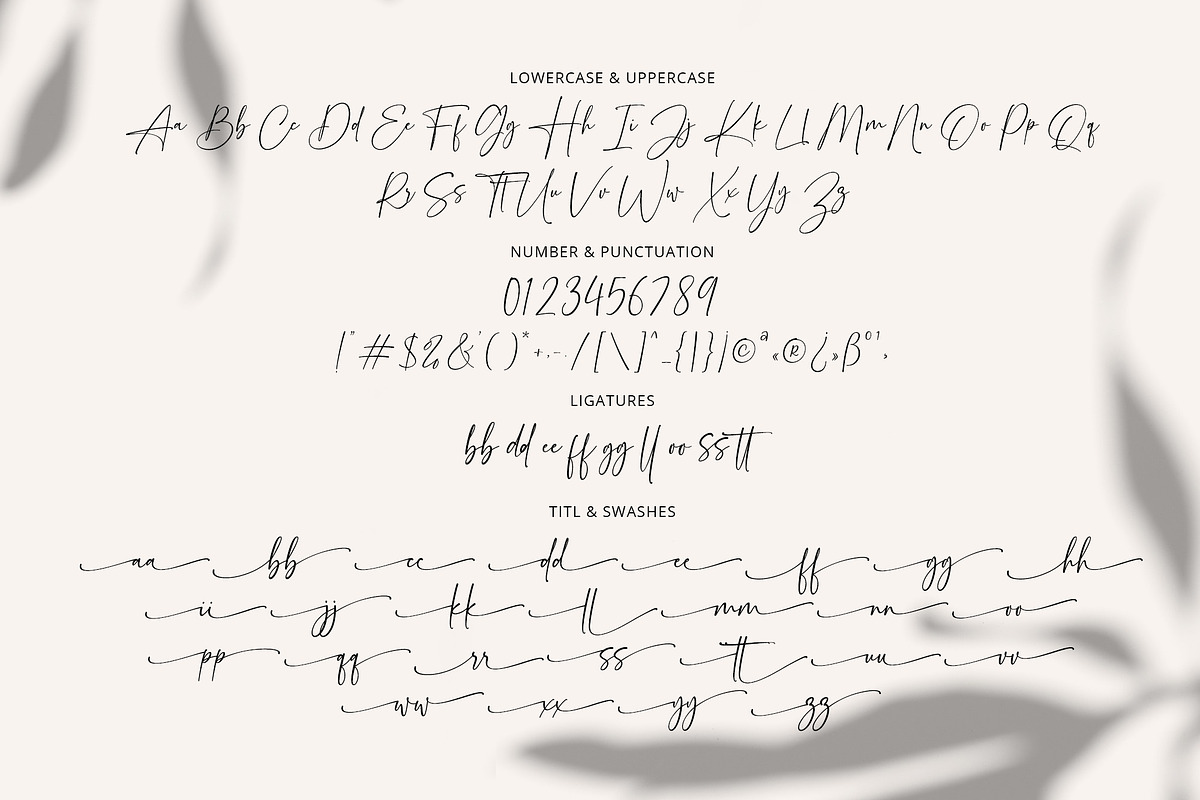 LOWERCASE & UPPERCASE
Aa Bb Cc Dd Ee Ff Gg Hh Ii Jj Kk Ll Mm Nn Oo Pp Qq
Rr Ss Tt Uu Vv Ww Xx Yy Zz
NUMBER & PUNCTUATION
0123456789
!"#$%&'()*+,-./[\]^_{|}¦©ª«®¿»ß°¹,
LIGATURES
bb dd ee ff gg ll oo ss tt
TITL & SWASHES
aa bb cc dd ee ff gg hh
ii jj kk ll mm nn oo
pp qq rr ss tt uu vv
ww xx yy zz